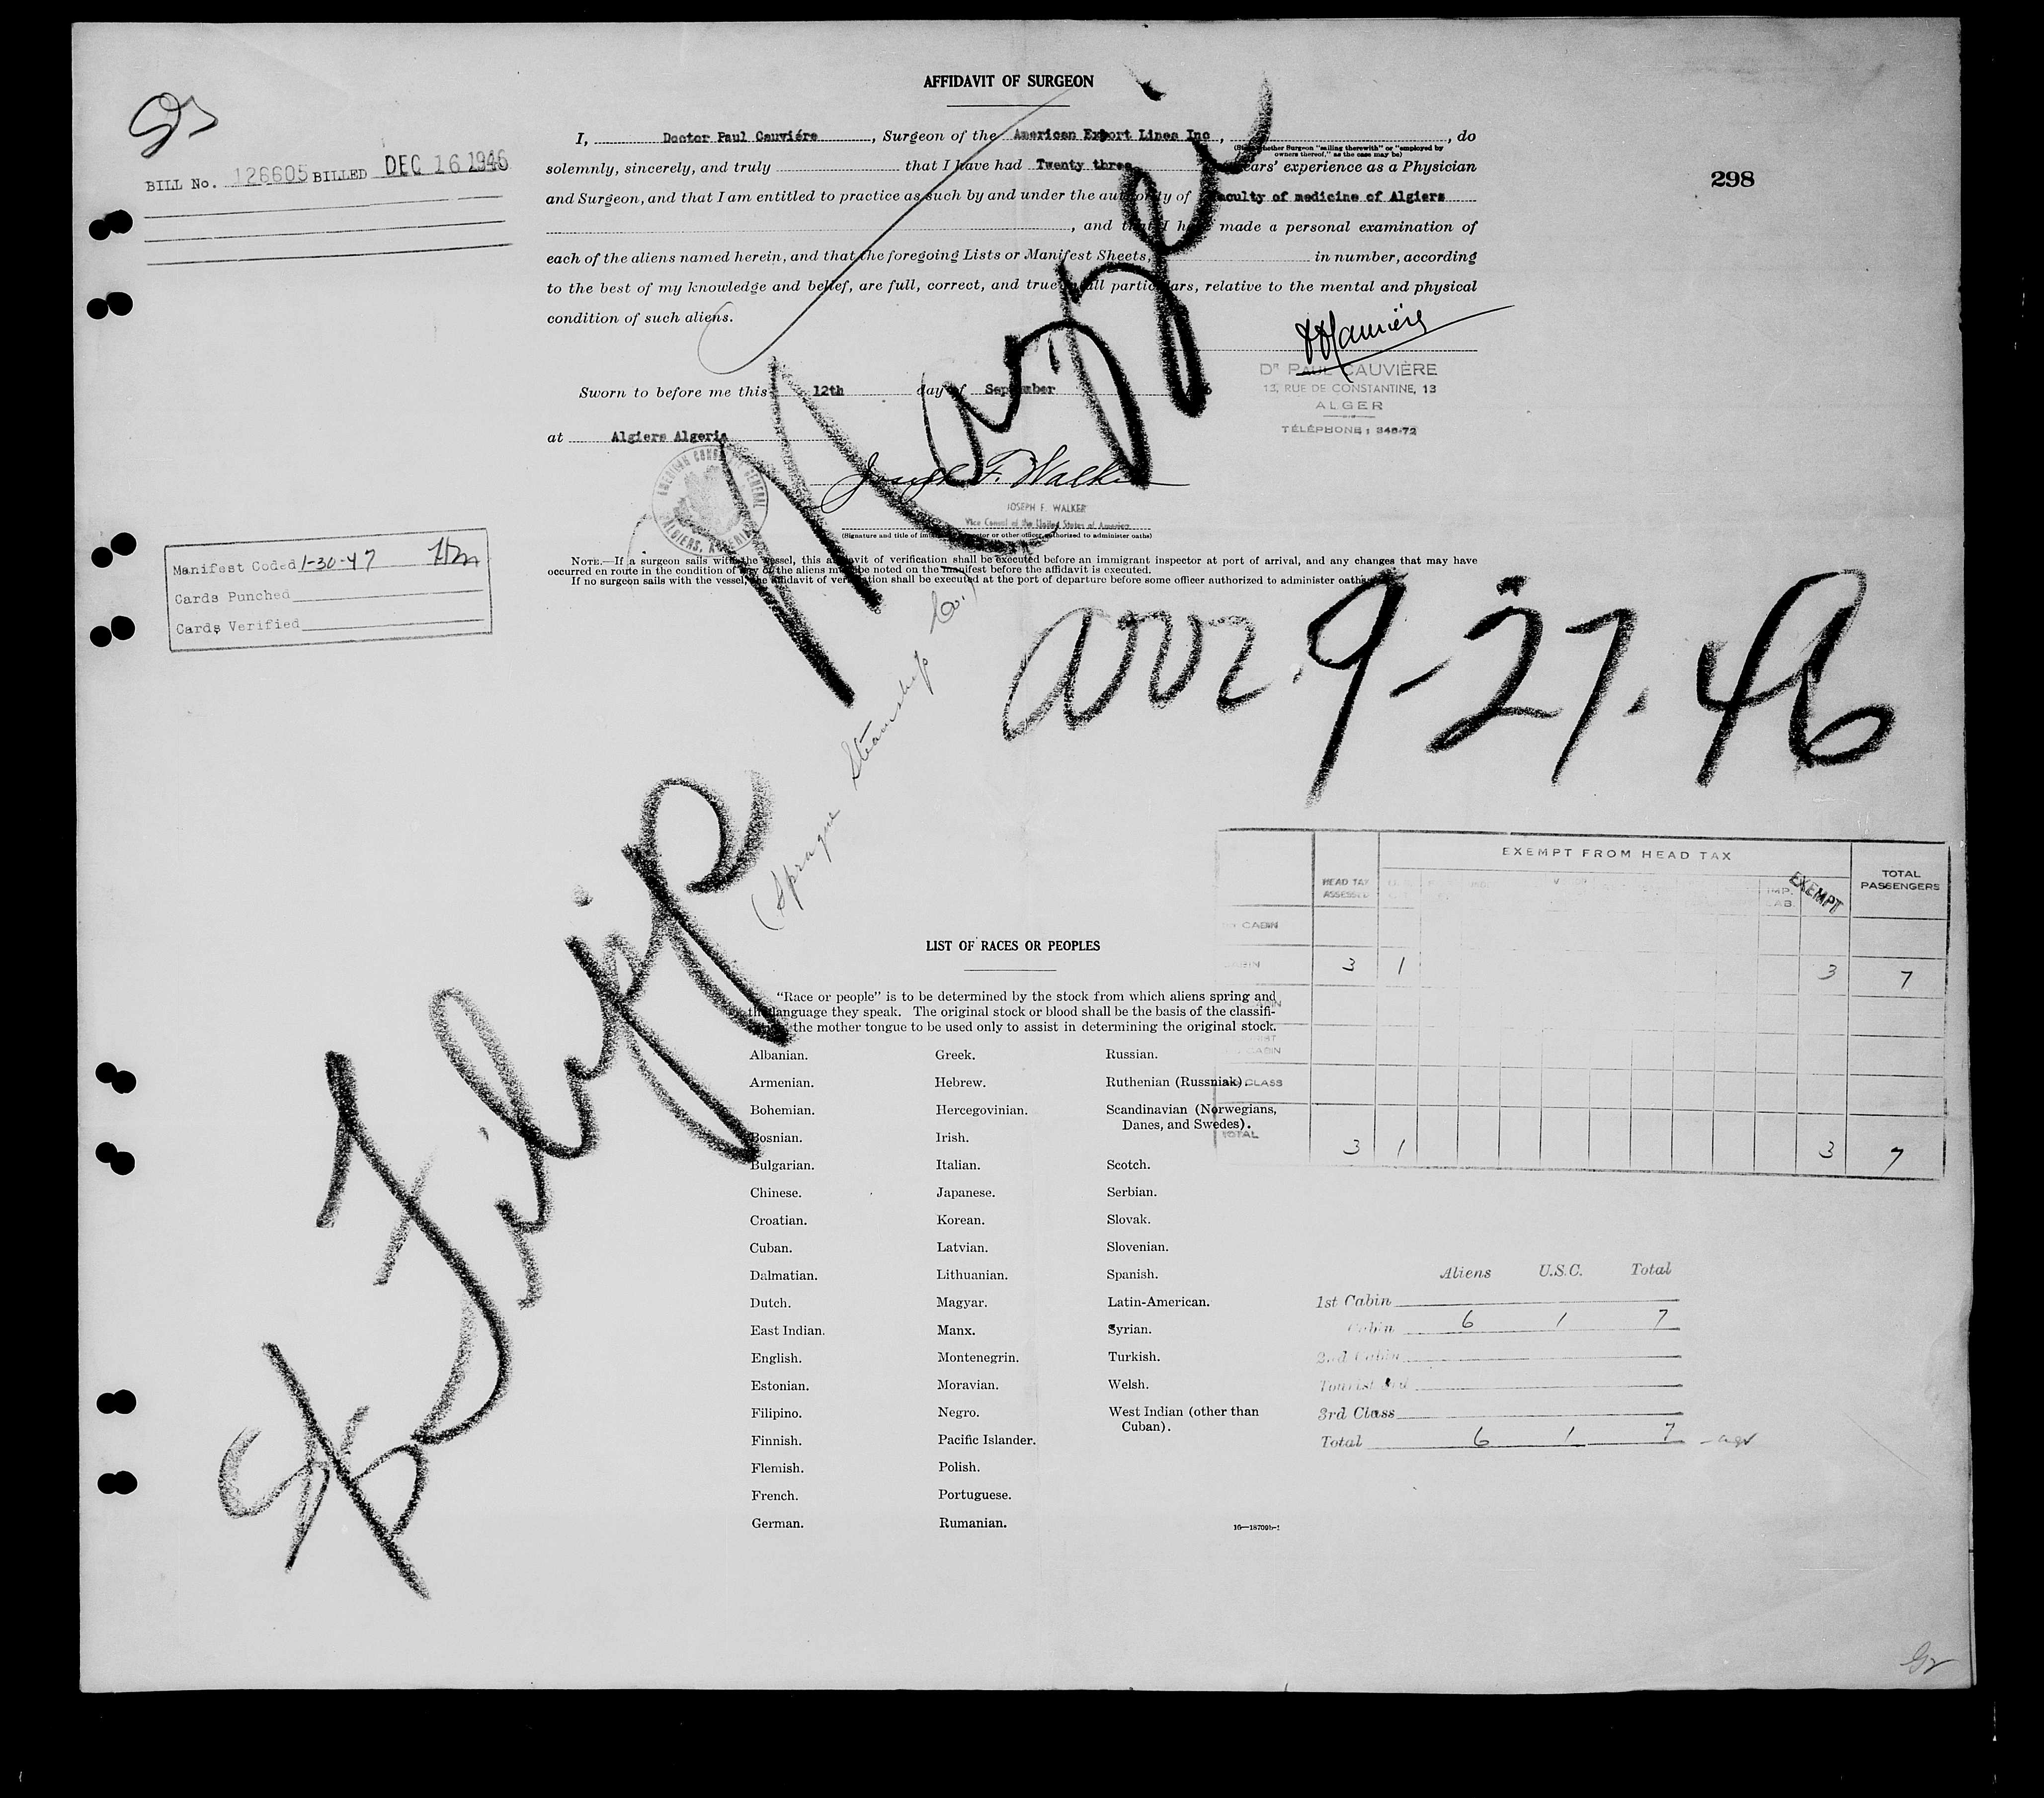 AFFIDAVIT OF SURGEON
I, Doctor Paul Cauviére, Surgeon of the American Export Lines Inc, , do
(State whether Surgeon "sailing therewith" or "employed by
owners thereof," as the case may be)
solemnly, sincerely, and truly that I have had Twenty three years' experience as a Physician
and Surgeon, and that I am entitled to practice as such by and under the authority of Faculty of medicine of Algiers
, and that I have made a personal examination of
each of the aliens named herein, and that the foregoing Lists or Manifest Sheets, in number, according
to the best of my knowledge and belief, are full, correct, and true in all particulars, relative to the mental and physical
condition of such aliens.
BILL No. 126605 BILLED DEC 16 1946
298
Dr PAUL CAUVIÈRE
13, RUE DE CONSTANTINE, 13
ALGER
TÉLÉPHONE : 348-72
Sworn to before me this 12th day of September
at Algiers Algeria
AMERICAN CONSULATE GENERAL
ALGIERS, ALGERIA
Joseph F. Walker
JOSEPH F. WALKER
Vice Consul of the United States of America
(Signature and title of immigrant inspector or other officer authorized to administer oaths)
NOTE.—If a surgeon sails with the vessel, this affidavit of verification shall be executed before an immigrant inspector at port of arrival, and any changes that may have
occurred en route in the condition of any of the aliens must be noted on the manifest before the affidavit is executed.
If no surgeon sails with the vessel, the affidavit of verification shall be executed at the port of departure before some officer authorized to administer oaths.
Manifest Coded 1-30-47
Cards Punched
Cards Verified
SS Filipp Mazzei
(Sprague Steamship Co.)
arr. 9-27-46
EXEMPT FROM HEAD TAX
HEAD TAX ASSESSED
IMP. LAB.
EXEMPT
TOTAL PASSENGERS
CABIN
CABIN 3 1 3 7
CABIN
CLASS
TOTAL 3 1 3 7
LIST OF RACES OR PEOPLES
"Race or people" is to be determined by the stock from which aliens spring and
the language they speak. The original stock or blood shall be the basis of the classifi-
the mother tongue to be used only to assist in determining the original stock.
Albanian. Greek. Russian.
Armenian. Hebrew. Ruthenian (Russniak).
Bohemian. Hercegovinian. Scandinavian (Norwegians,
Danes, and Swedes).
Bosnian. Irish.
Bulgarian. Italian. Scotch.
Chinese. Japanese. Serbian.
Croatian. Korean. Slovak.
Cuban. Latvian. Slovenian.
Dalmatian. Lithuanian. Spanish.
Dutch. Magyar. Latin-American.
East Indian. Manx. Syrian.
English. Montenegrin. Turkish.
Estonian. Moravian. Welsh.
Filipino. Negro. West Indian (other than
Cuban).
Finnish. Pacific Islander.
Flemish. Polish.
French. Portuguese.
German. Rumanian.
16—18709b-1
Aliens U.S.C. Total
1st Cabin
Cabin 6 1 7
2nd Cabin
Tourist 3rd
3rd Class
Total 6 1 7